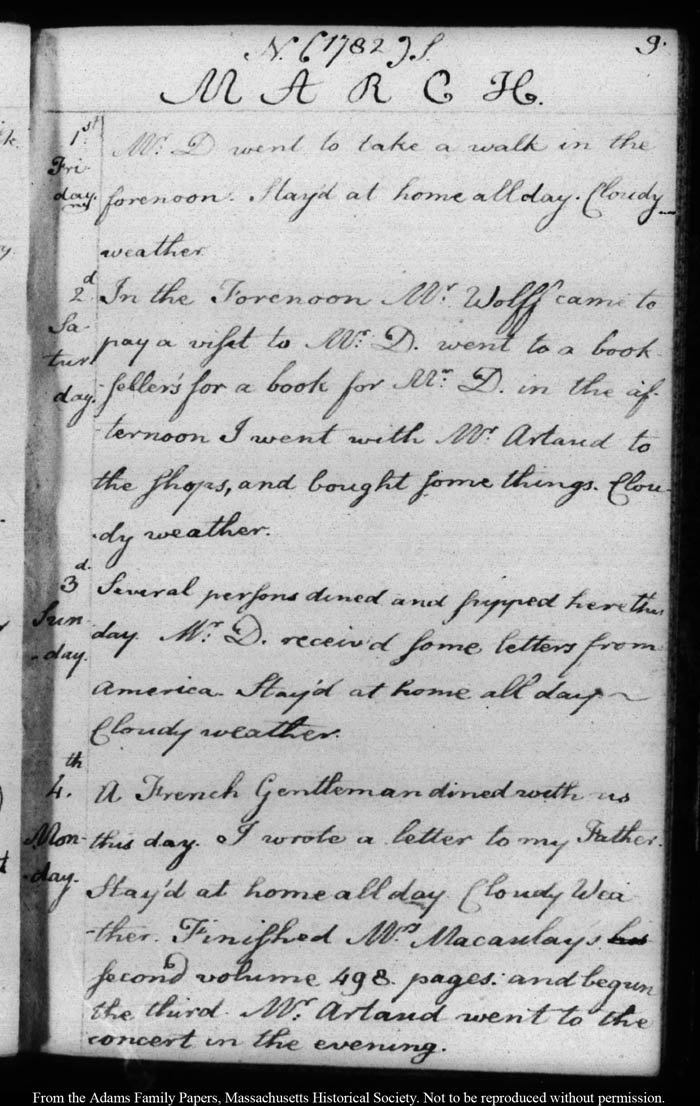 N. (1782) S.
9.
MARCH.
1st
Fri
day.
Mr. D went to take a walk in the
forenoon. Stay'd at home all day. Cloudy
weather
2d
Sa-
tur
day.
In the Forenoon Mr. Wolff came to
pay a visit to Mr. D. went to a book
sellers for a book for Mr. D. in the af-
ternoon I went with Mr. Artaud to
the shops, and bought some things. Clou-
dy weather.
3d.
Sun
day.
Several persons dined and supped here this
day. Mr. D. receiv'd some letters from
America. Stay'd at home all day
Cloudy weather.
4.th
Mon-
day.
A French Gentleman dined with us
this day. I wrote a letter to my Father.
Stay'd at home all day Cloudy Wea
ther. Finished Mrs. Macaulay's his
second volume 498. pages. and begun
the third. Mr. Artaud went to the
concert in the evening.
From the Adams Family Papers, Massachusetts Historical Society. Not to be reproduced without permission.